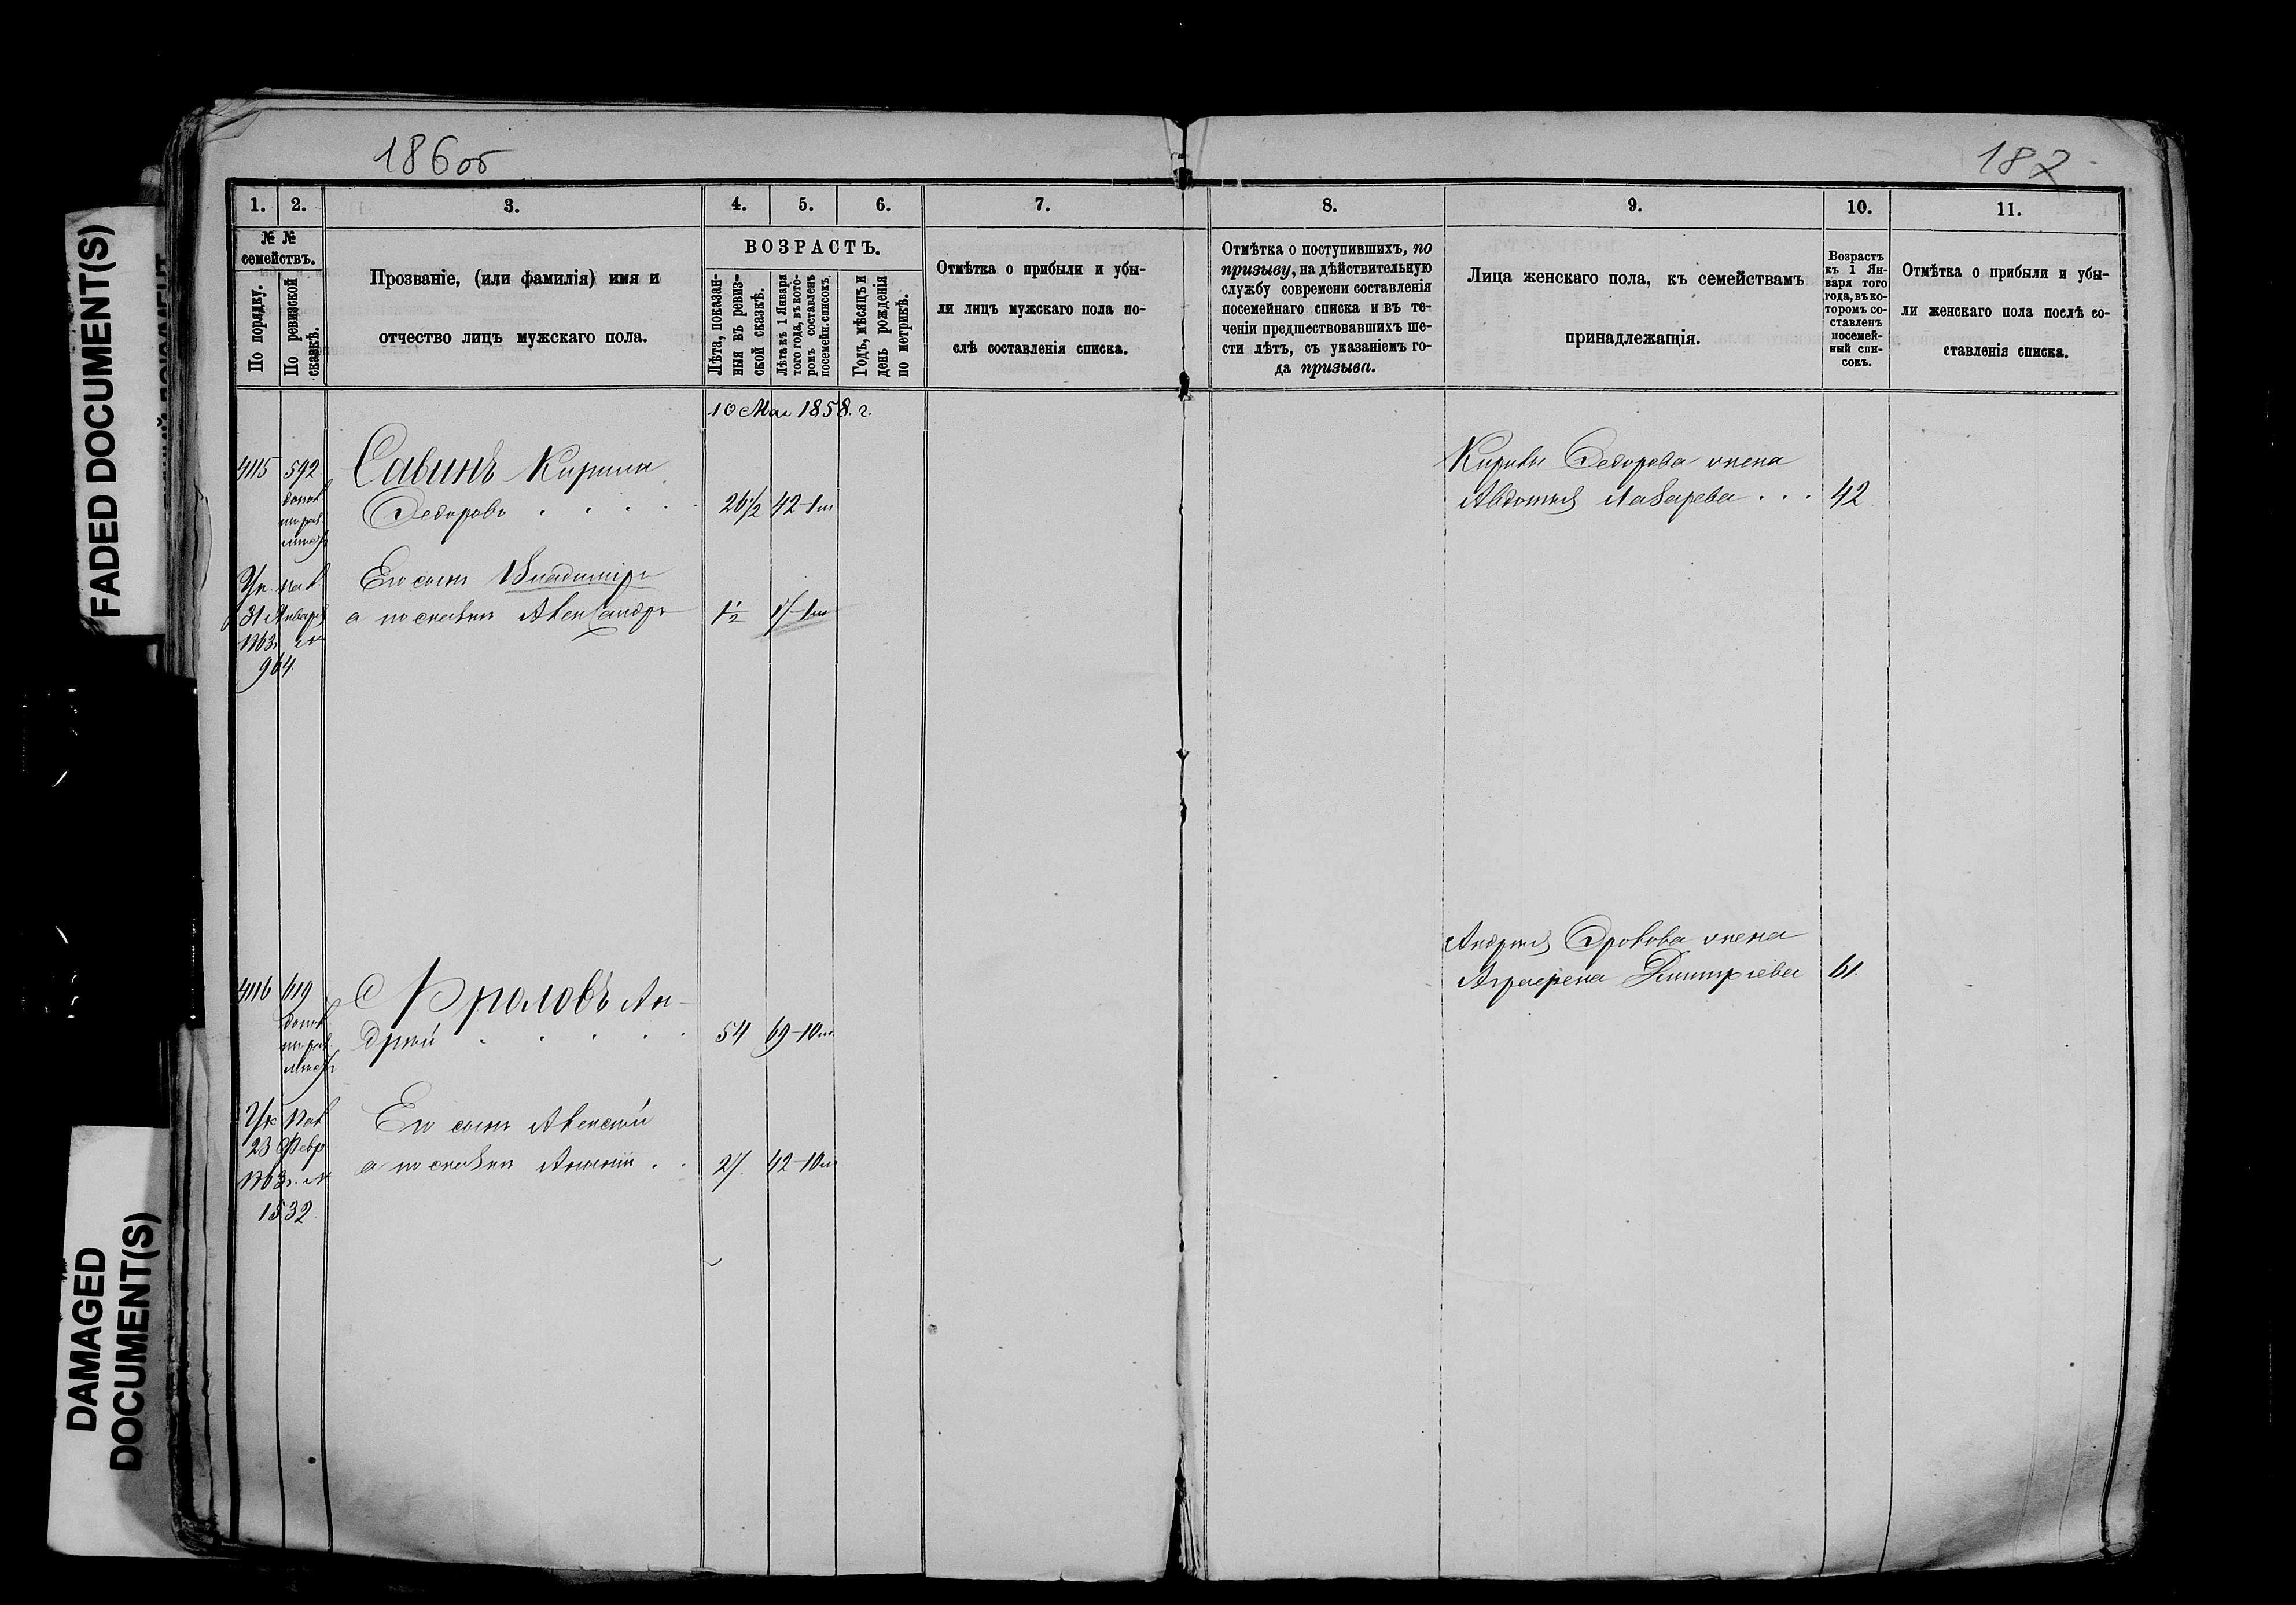 FADED DOCUMENT(S)
DAMAGED
DOCUMENT(S)
186об
187
1. 2. 3. 4. 5. 6. 7.
№ №
семействъ.
По порядку.
По ревизской
сказкѣ.
Прозваніе, (или фамилія) имя и
отчество лицъ мужскаго пола.
ВОЗРАСТЪ.
Лѣта, показан-
ныя въ ревиз-
ской сказкѣ.
Лѣта къ 1 Января
того года, въ кото-
ромъ составленъ
посемейн. списокъ.
Годъ, мѣсяцъ и
день рожденія
по метрикѣ.
Отмѣтка о прибыли и убы-
ли лицъ мужскаго пола по-
слѣ составленія списка.
8. 9. 10. 11.
Отмѣтка о поступившихъ, по
призыву, на дѣйствительную
службу современи составленія
посемейнаго списка и въ те-
ченіи предшествовавшихъ ше-
сти лѣтъ, съ указаніемъ го-
да призыва.
Лица женскаго пола, къ семействамъ
принадлежащія.
Возрастъ
къ 1 Ян-
варя того
года, въ ко-
торомъ со-
ставленъ
посемей-
ный спи-
сокъ.
Отмѣтка о прибыли и убы-
ли женскаго пола послѣ со-
ставленія списка.
10 Мая 1858. г.
4115 592 Савинъ Кирила
Федоровъ . . . . 26½ 42-1м
Ук. Пал
31 Января
1863г №
964.
Его сынъ Владиміръ
а по сказкѣ Александръ 1½ 17-1м
Кирилы Федорова жена
Авдотья Лазарева . . . 42
4116 619 Фроловъ Ан-
дрей . . . . . 54 69-10м
Ук Пал
23 Февр
1863г. №
1532
Его сынъ Алексѣй
а по сказкѣ Ананій . . 27. 42-10м
Андрея Фролова жена
Аграфена Дмитріева 61.